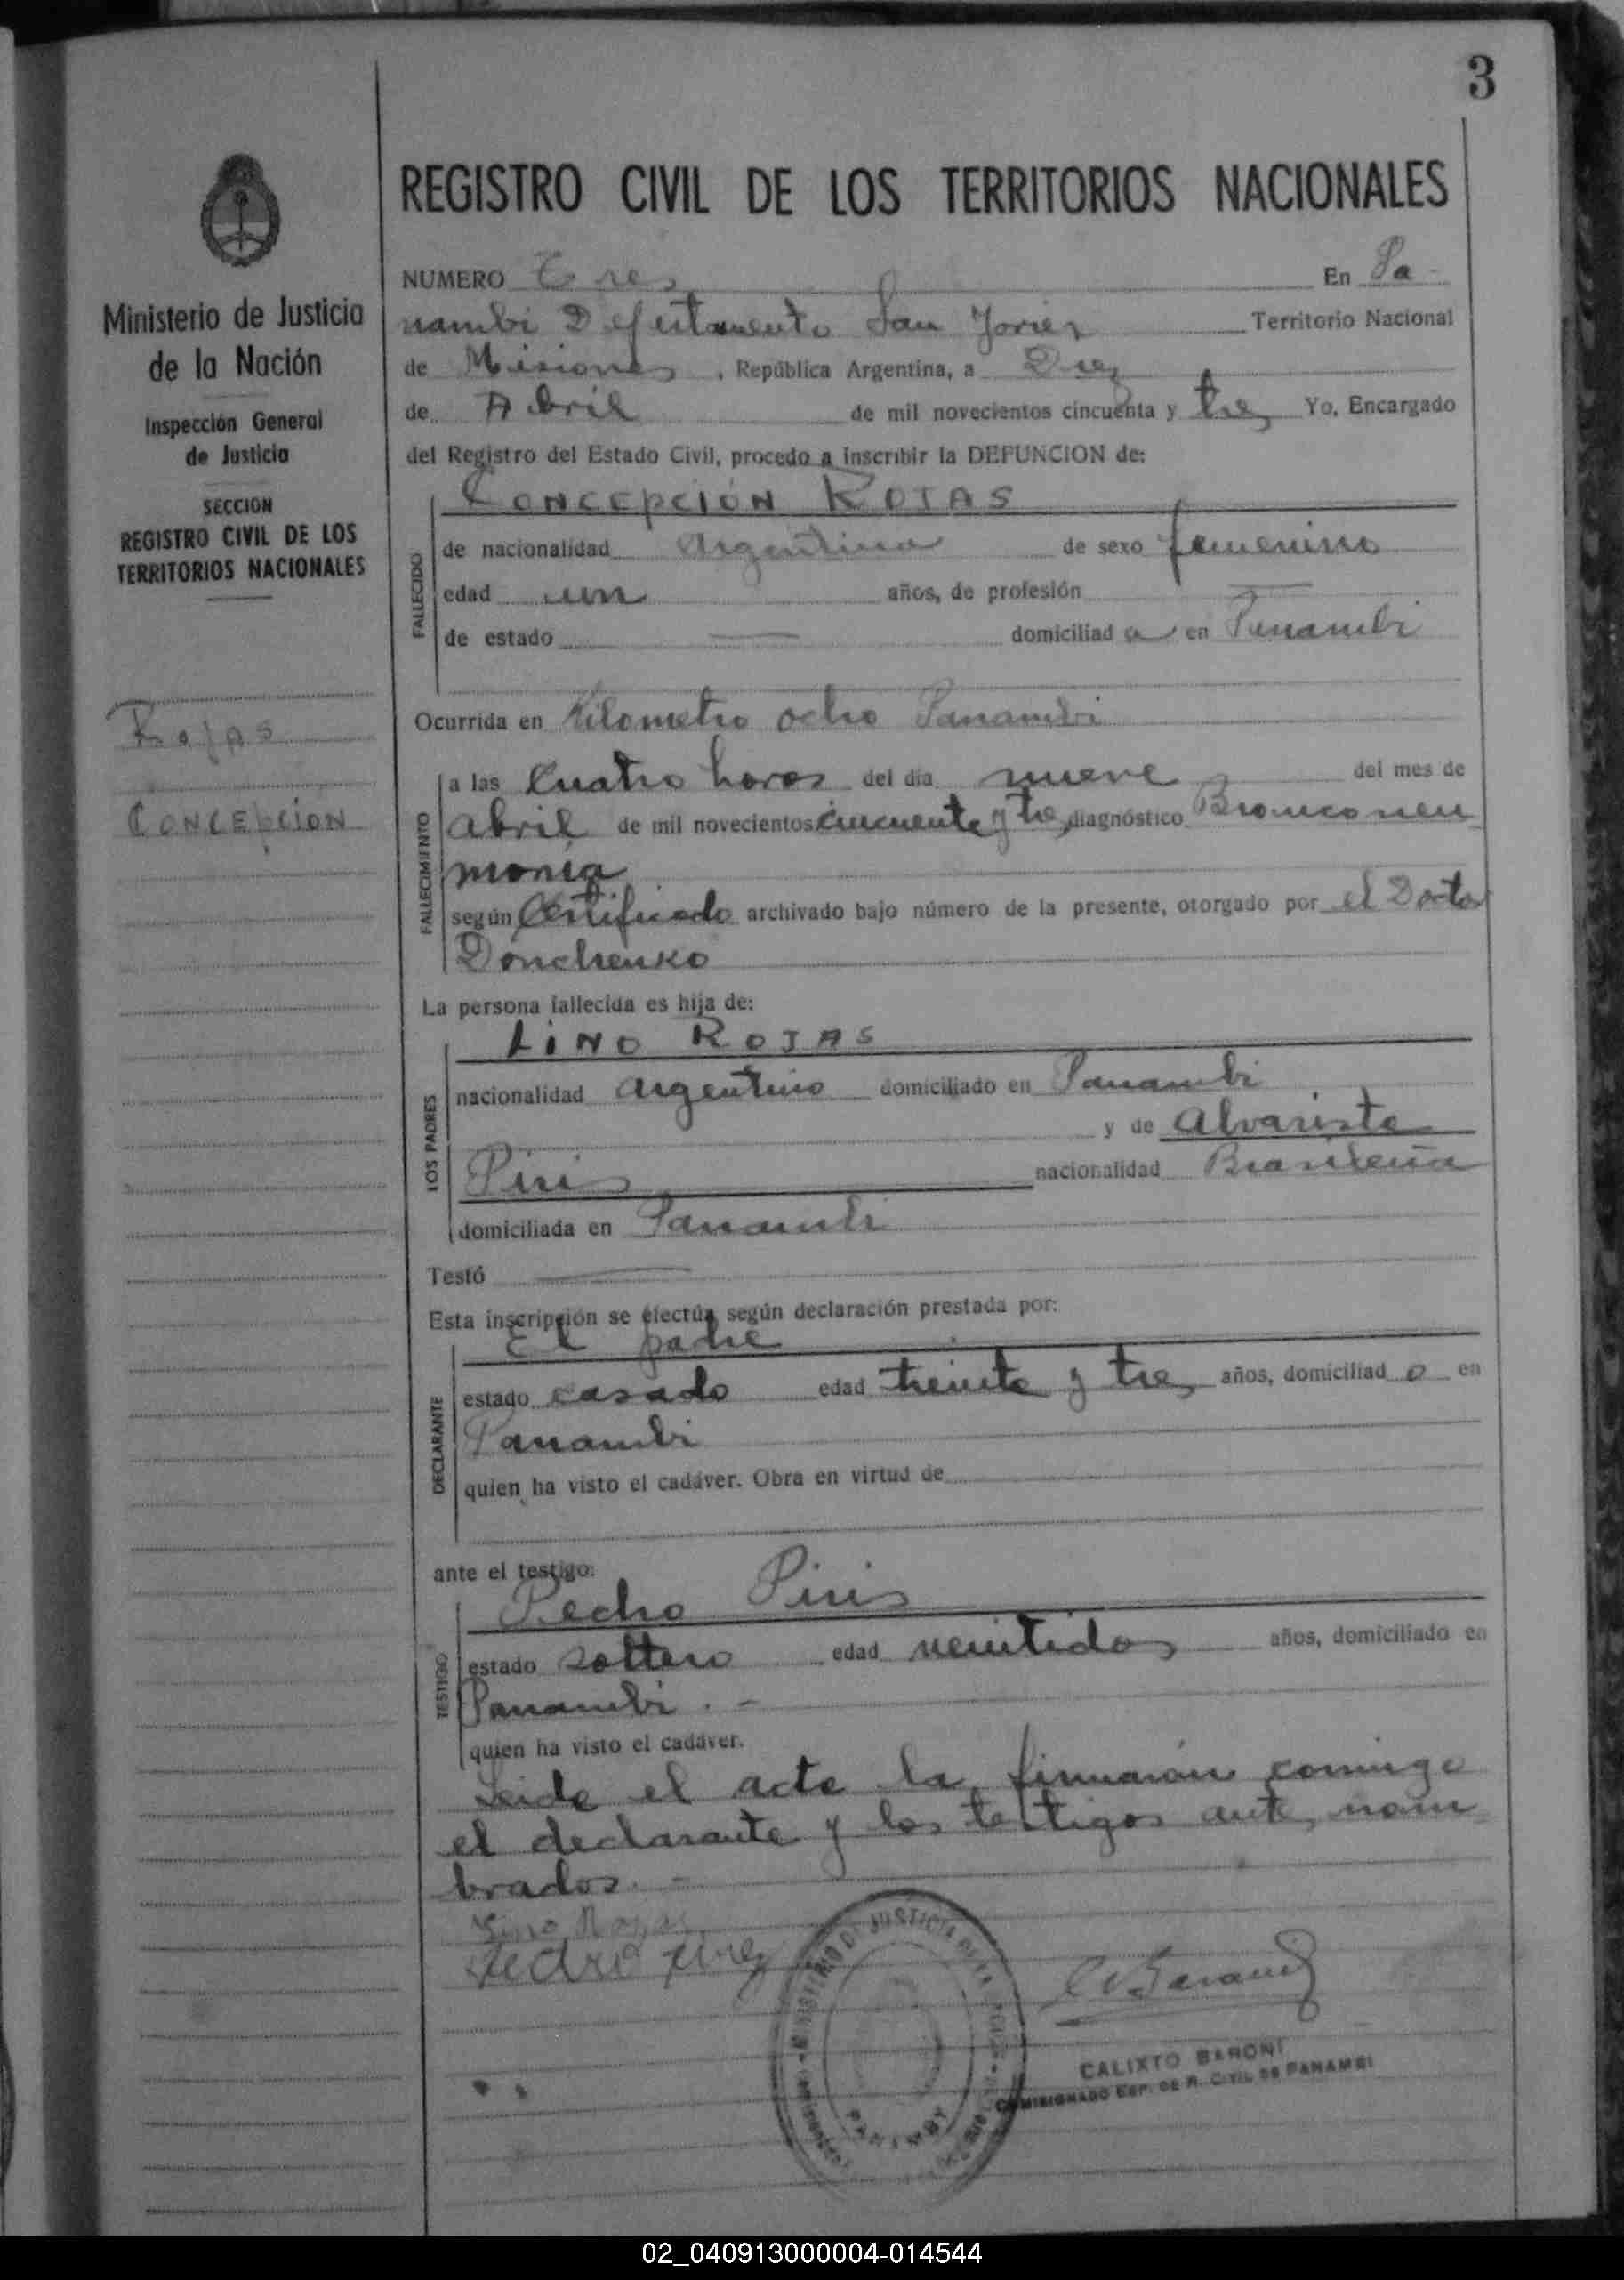 3
REGISTRO CIVIL DE LOS TERRITORIOS NACIONALES
Ministerio de Justicia
de la Nación
Inspección General
de Justicia
SECCION
REGISTRO CIVIL DE LOS
TERRITORIOS NACIONALES
Rojas
CONCEPCION
NUMERO Tres En Pa-
nambi Departamento San Javier Territorio Nacional
de Misiones, República Argentina, a Diez
de Abril de mil novecientos cincuenta y tres Yo, Encargado
del Registro del Estado Civil, procedo a inscribir la DEFUNCION de:
CONCEPCION ROJAS
FALLECIDO
de nacionalidad Argentina de sexo femenino
edad un años, de profesión —
de estado — domiciliad a en Panambi
Ocurrida en Kilometro ocho Panambi
FALLECIMIENTO
a las Cuatro horas del día nueve del mes de
abril de mil novecientos cincuenta y tres diagnóstico Bronconeu
monia
según Certificado archivado bajo número de la presente, otorgado por el Doctor
Donchenko
La persona fallecida es hija de:
LINO ROJAS
LOS PADRES
nacionalidad argentino domiciliado en Panambi
y de Alvarista
Piris nacionalidad Brasileña
domiciliada en Panambi
Testó —
Esta inscripción se efectúa según declaración prestada por:
El padre
DECLARANTE
estado casado edad treinta y tres años, domiciliad o en
Panambi
quien ha visto el cadáver. Obra en virtud de
ante el testigo:
Pedro Piris
TESTIGO
estado soltero edad veintidos años, domiciliado en
Panambi . -
quien ha visto el cadáver.
Leida el acta la firmaron conmigo
el declarante y los testigos antes nom
brados. -
Lino Rojas
Pedro Pires
MINISTERIO DE JUSTICIA DE LA
PANAMBI
CALIXTO BARONI
COMISIONADO ESP. DE R. CIVIL DE PANAMBI
02_040913000004-014544